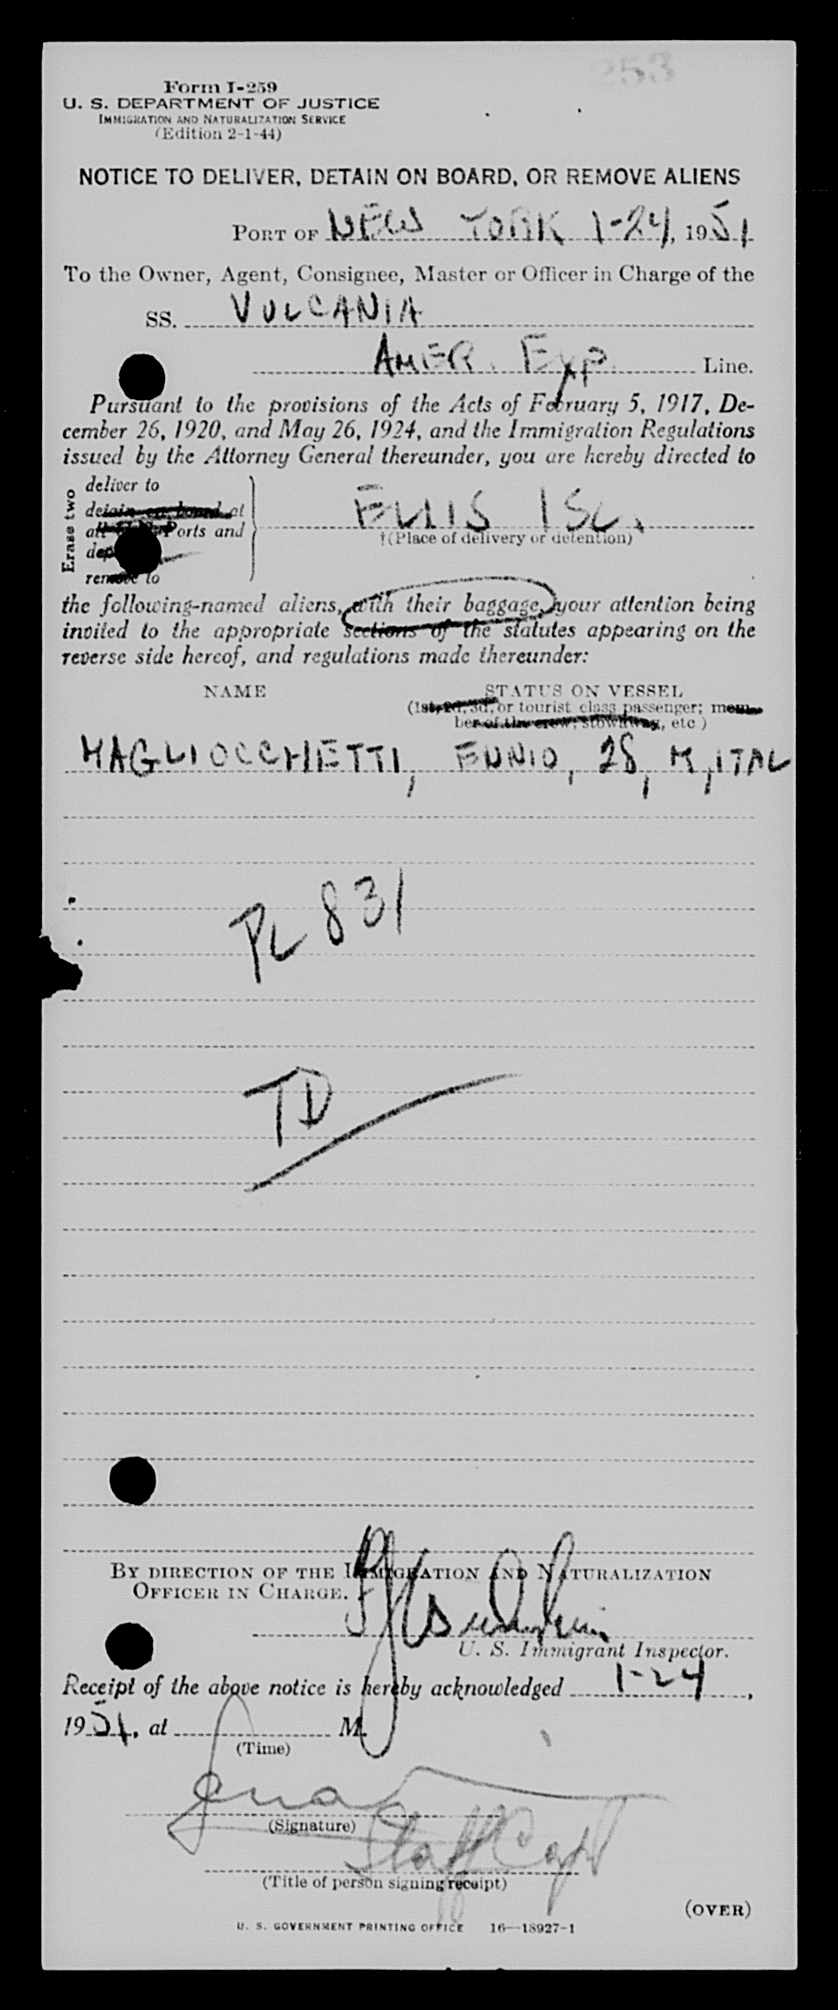 253
Form I-259
U. S. DEPARTMENT OF JUSTICE
IMMIGRATION AND NATURALIZATION SERVICE
(Edition 2-1-44)
NOTICE TO DELIVER, DETAIN ON BOARD, OR REMOVE ALIENS
PORT OF NEW YORK 1-24, 1951
To the Owner, Agent, Consignee, Master or Officer in Charge of the
SS. VULCANIA
AMER. EXP. Line.
Pursuant to the provisions of the Acts of February 5, 1917, De-
cember 26, 1920, and May 26, 1924, and the Immigration Regulations
issued by the Attorney General thereunder, you are hereby directed to
Erase two
deliver to
detain on board at
all Ports and
remove to
ELLIS ISL.
†(Place of delivery or detention)
the following-named aliens, with their baggage, your attention being
invited to the appropriate sections of the statutes appearing on the
reverse side hereof, and regulations made thereunder:
NAME STATUS ON VESSEL
(1st, 2d, 3d, or tourist class passenger; mem-
ber of the crew, stowaway, etc.)
MAGLIOCCHETTI, ENNIO, 28, M, ITAL
PL 831
TD
BY DIRECTION OF THE IMMIGRATION AND NATURALIZATION
OFFICER IN CHARGE.
U. S. Immigrant Inspector.
Receipt of the above notice is hereby acknowledged 1-24,
1951, at M.
(Time)
(Signature)
Staff Capt
(Title of person signing receipt)
(OVER)
U. S. GOVERNMENT PRINTING OFFICE 16—18927-1